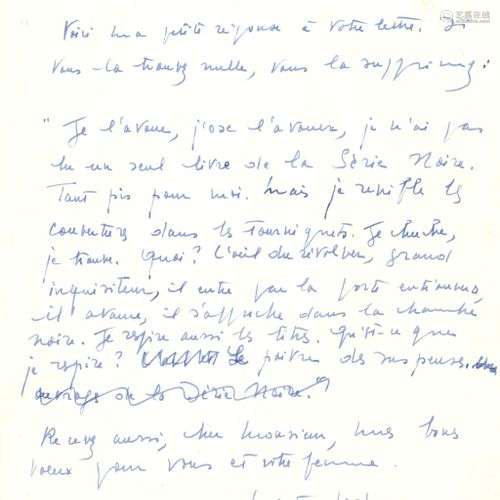 Voici ma petite réponse à votre lettre. Si
vous la trouvez nulle, vous la supprimez :
" Je l'avoue, j'ose l'avouer, je n'ai pas
lu un seul livre de la Série Noire.
Tant pis pour moi. Mais je renifle les
couvertures dans les tourniquets. Je cherche,
je trouve. Quoi ? L'oeil du révolver, grand
inquisiteur, il entre par la porte entrouverte
il avance, il s'affiche dans la chambre
noire. Je respire aussi les titres. Qu'est-ce que
je respire ? Le poivre des suspenses.
ouvrages de la Série Noire. "
Recevez aussi, cher Monsieur, mes bons
voeux pour vous et votre femme.